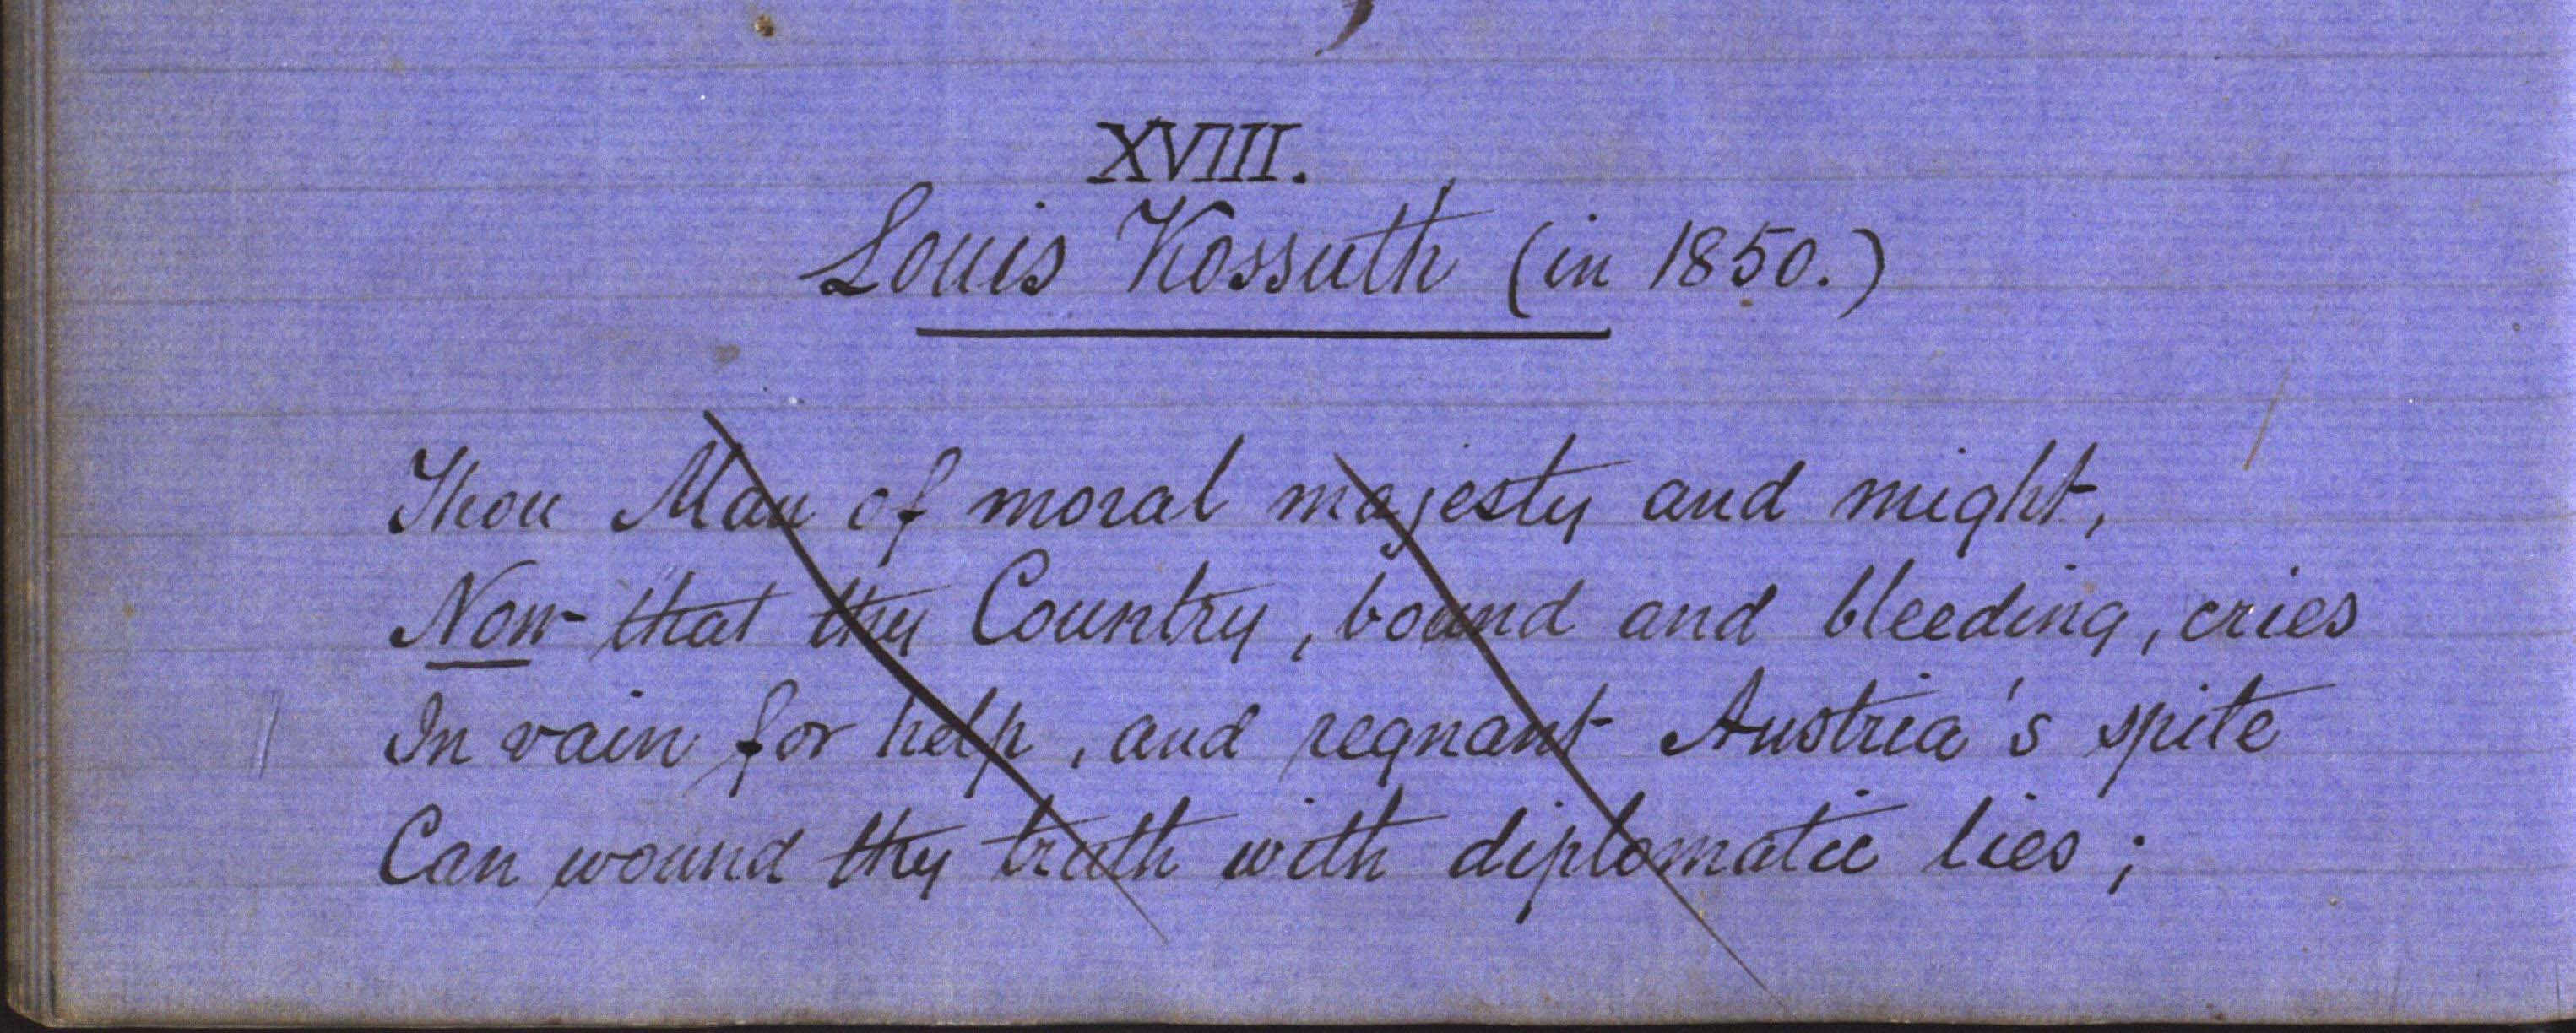 XVIII.
Louis Kossuth (in 1850.)
Thou Man of moral majesty and might,
Now that thy Country, bound and bleeding, cries
In vain for help, and regnant Austria's spite
Can wound thy truth with diplomatic lies;